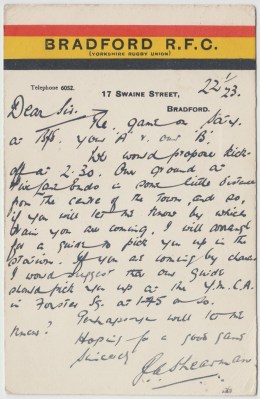 BRADFORD R.F.C.
(YORKSHIRE RUGBY UNION)
Telephone 6052.
17 SWAINE STREET,
BRADFORD.
22/1/23.
Dear Sir.
The game on Sat'y
at B'f'd. your A v. our 'B'.
We would propose kick-
off at 2-30. Our ground at
is some little distance
from the centre of the Town, and so,
if you will let me know by which
train you are coming, I will arrange
for a guide to pick you up in the
station. If you are coming by
I would suggest that our guide
should pick you up at the Y.M.C.A
in Forster Sq. at 1-45 or so.
Perhaps you will let me
know?
Hoping for a good game
Sincerely